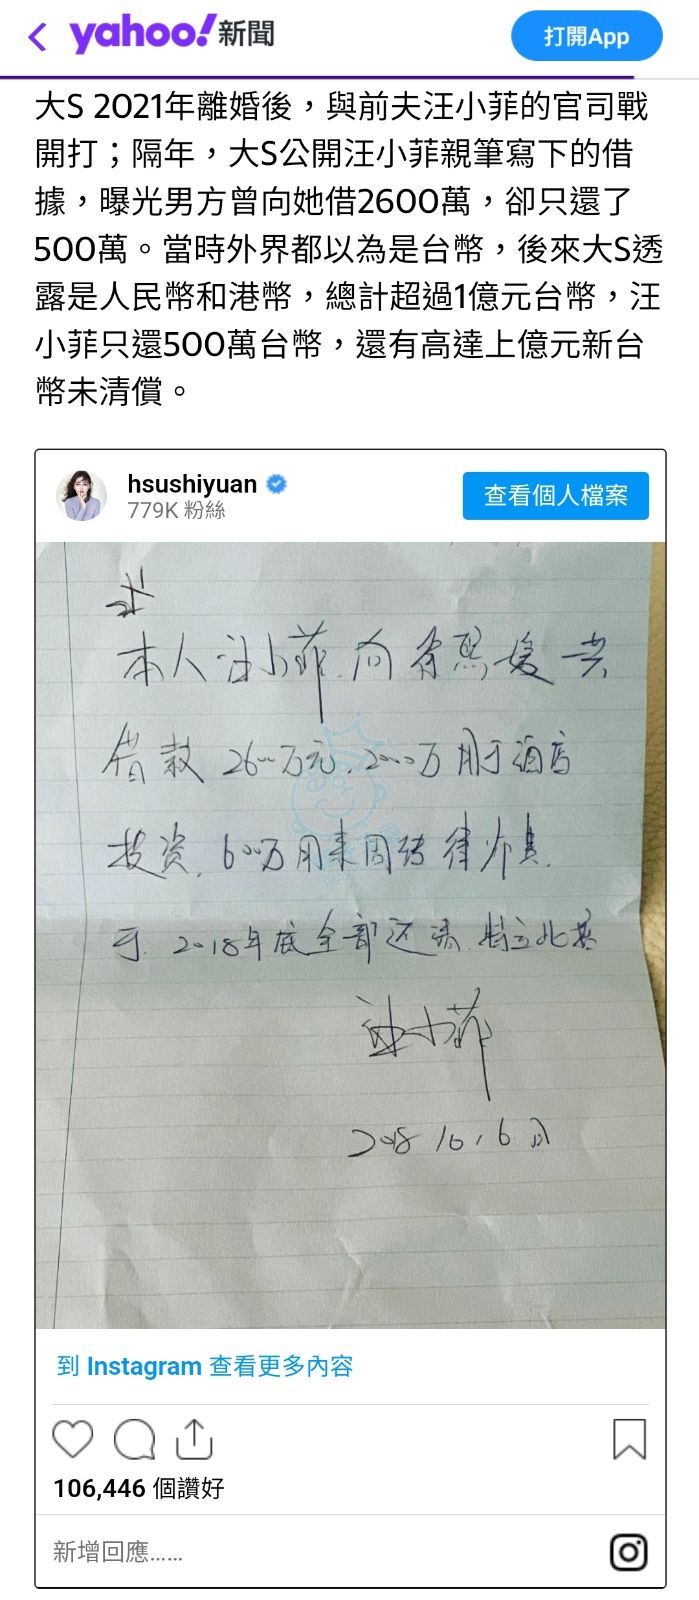 yahoo!新聞
打開App
大S 2021年離婚後，與前夫汪小菲的官司戰
開打；隔年，大S公開汪小菲親筆寫下的借
據，曝光男方曾向她借2600萬，卻只還了
500萬。當時外界都以為是台幣，後來大S透
露是人民幣和港幣，總計超過1億元台幣，汪
小菲只還500萬台幣，還有高達上億元新台
幣未清償。
hsushiyuan
779K 粉絲
查看個人檔案
本人汪小菲.向徐熙媛共
借款 2600万元.2000万用于酒店
投资.600万用来周转律师费.
于.2018年底全部还清.特立此
汪小菲
2018 10.6.
到 Instagram 查看更多內容
106,446 個讚好
新增回應......